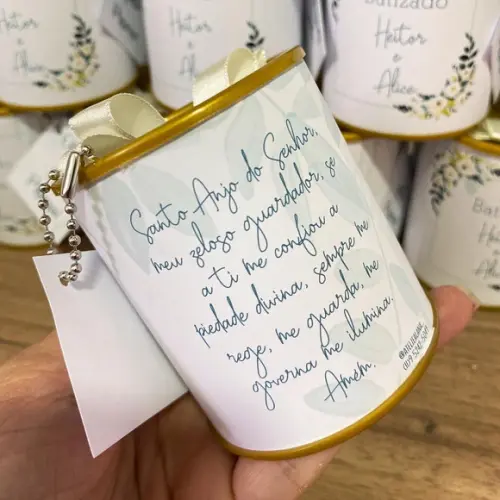 Santo Anjo do Senhor,
meu zeloso guardador, se
a ti me confiou a
piedade divina, sempre me
rege, me guarda, me
governa me ilumina.
Amém.
Heitor
e
Batizado
Heitor
e
Alice